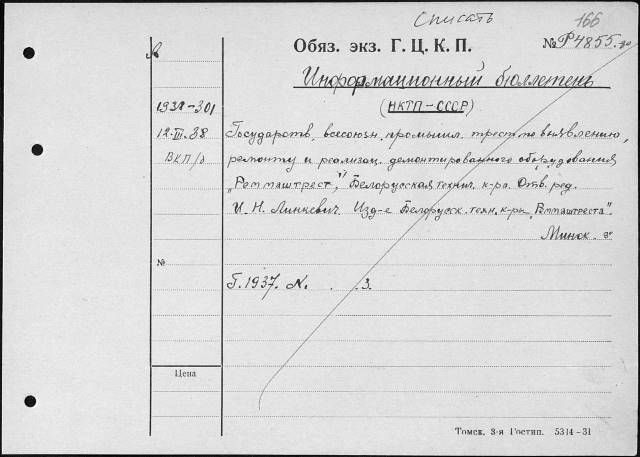 Списать
166
Обяз. экз. Г. Ц. К. П. № Р4855.
Информационный бюллетень
(НКТП-СССР)
193 -301
12.III.38
ВКП/б
Государств. всесоюзн. промышл. трест по выявлению,
ремонту и реализац. демонтированного оборудования
„Ремматрест", Белорусская технич. к-ра. Отв. ред.
И. Н. Линкевич. Изд-е Белорусск. техн. к-ры „Ремматреста".
Минск.
№
Г. 1937. N. . .3.
Цена
Томск. 3-я Гостип. 5314-31